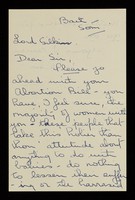 Bath
Som
Lord Silkin
Dear Sir,
Please go
ahead with your
Abortion Bill - you
have, I feel sure, the
majority of women with
you & those people that
take this holier than
thou attitude about
anything to do with
babies - do nothing
to lessen their suffer
ing or the harrass